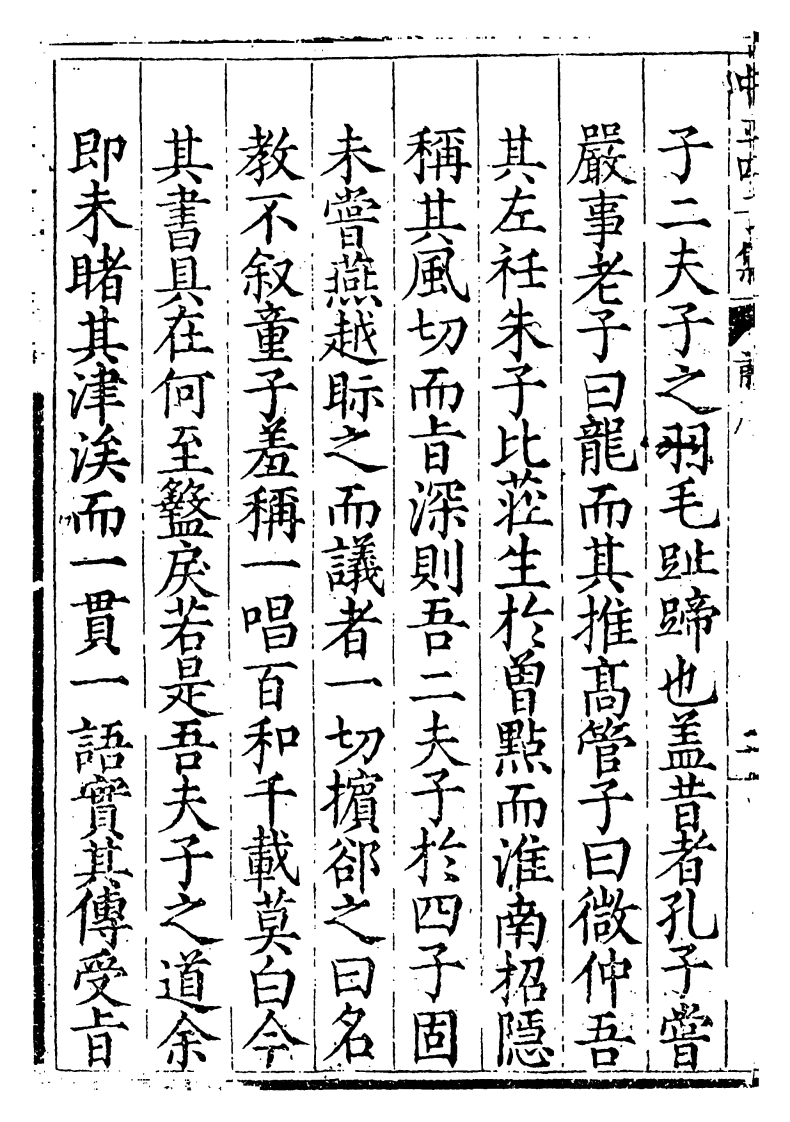 子二夫子之羽毛趾蹄也盖昔者孔子甞
嚴事老子曰龍而其推髙管子曰微仲吾
其左衽朱子比莊生於曾點而淮南招隱
稱其風切而㫖深則吾二夫子於四子固
未甞燕越眎之而議者一切擯郤之曰名
教不叙童子羞稱一唱百和千載莫白今
其書具在何至盭戾若是吾夫子之道余
即未睹其津涘而一貫一語實其傳受㫖